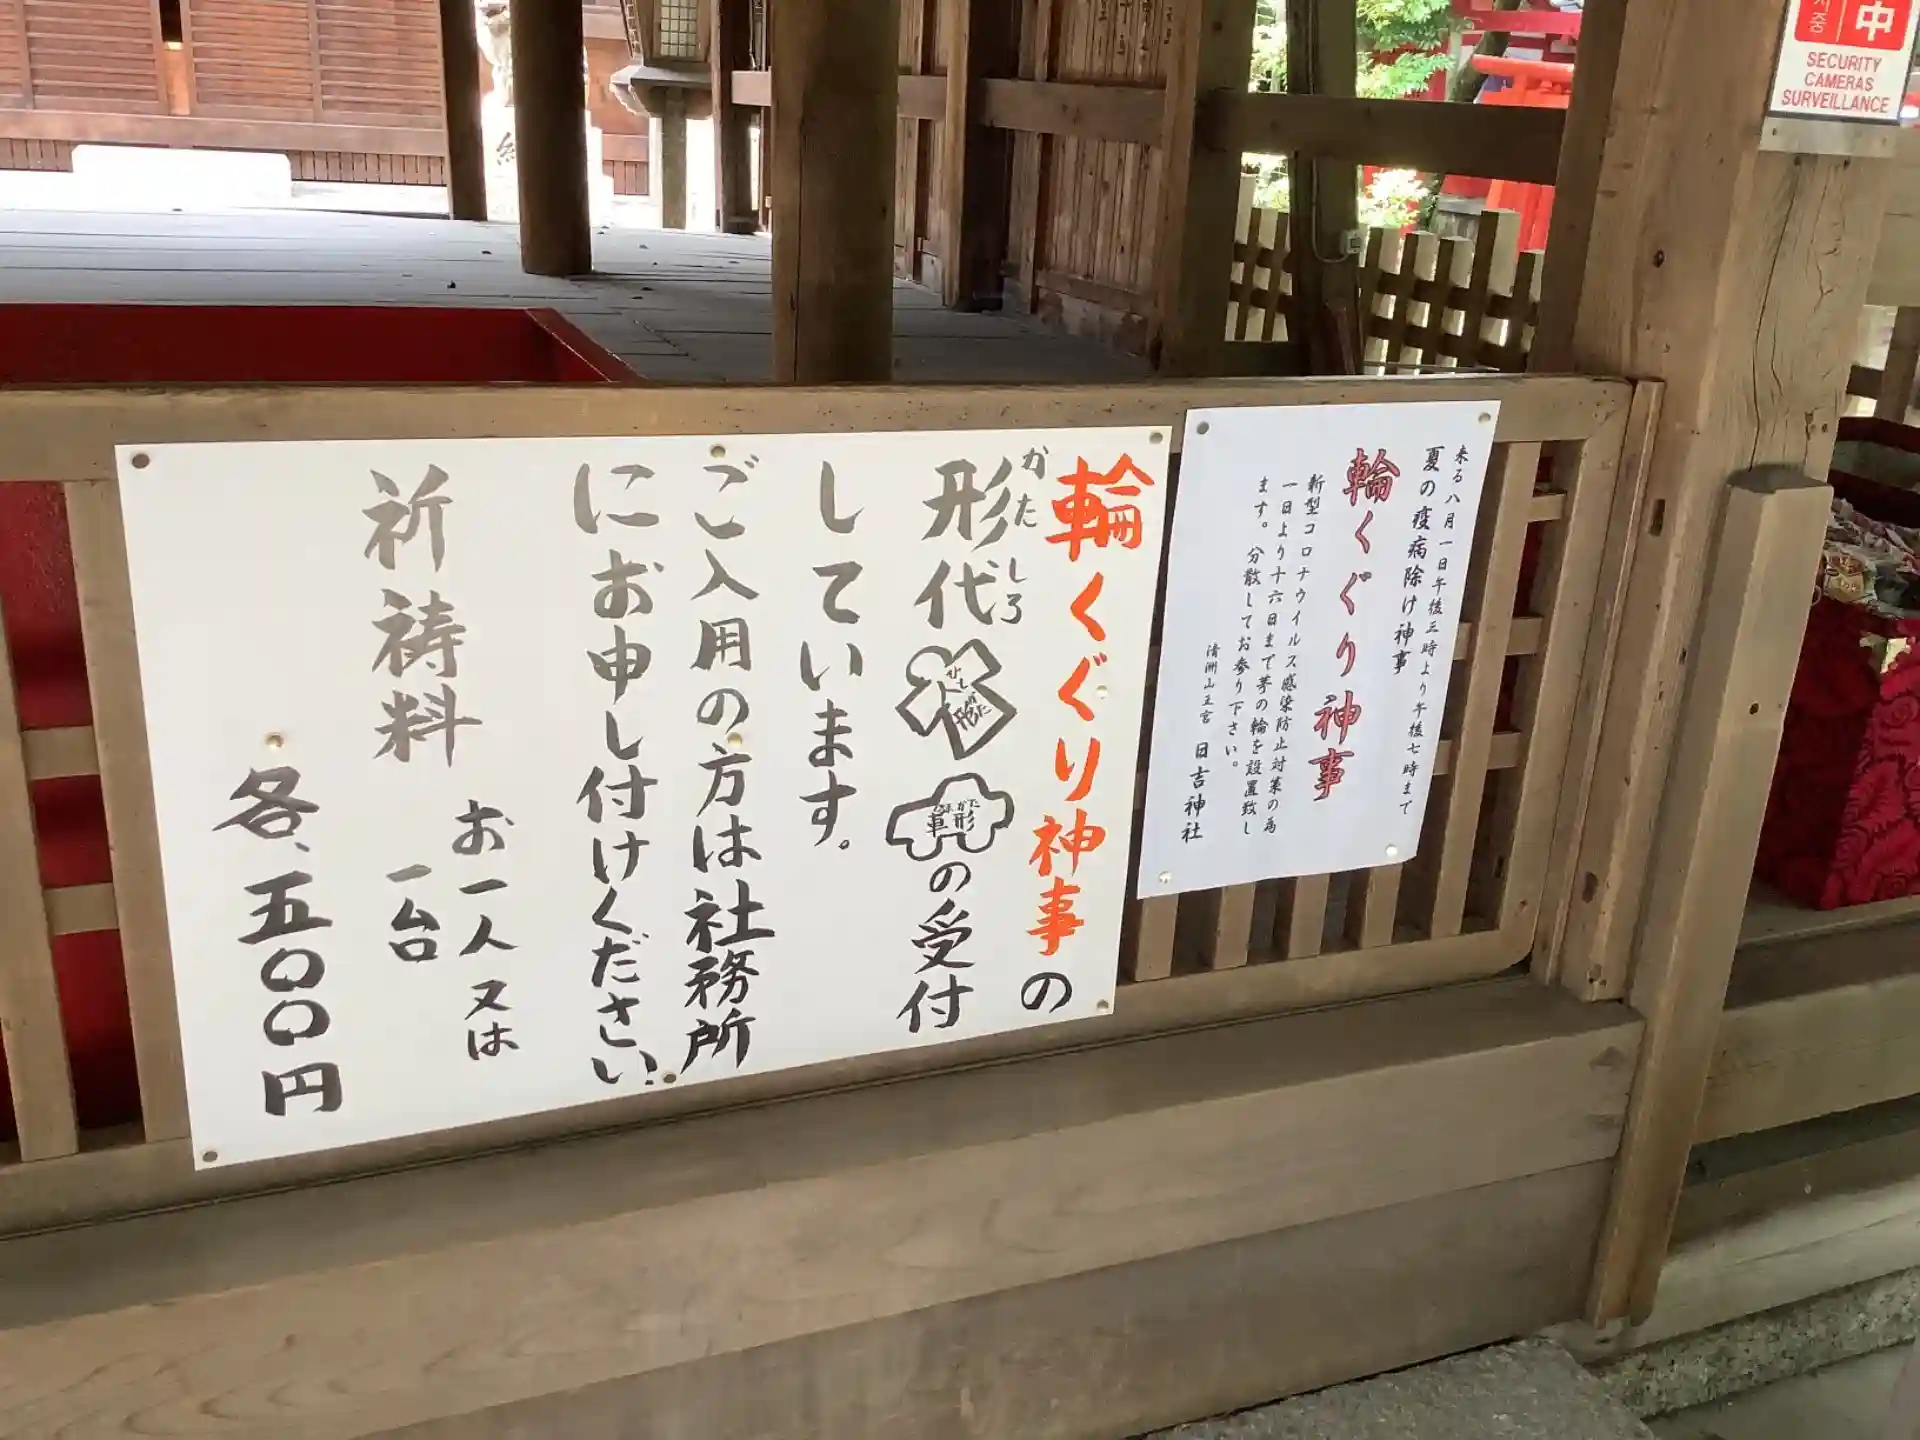 来る八月一日午後三時より午後七時まで
夏の疫病除け神事
輪くぐり神事
新型コロナウイルス感染防止対策の為
一日より十六日まで茅の輪を設置致し
ます。分散してお参り下さい。
清洲山王宮 日吉神社
輪くぐり神事の
形代 の受付
かた しろ
ひとかた
人形
車形
しています。
ご入用の方は社務所
にお申し付けください。
祈祷料 お一人又は
一台
各、五〇〇円
中
SECURITY
CAMERAS
SURVEILLANCE